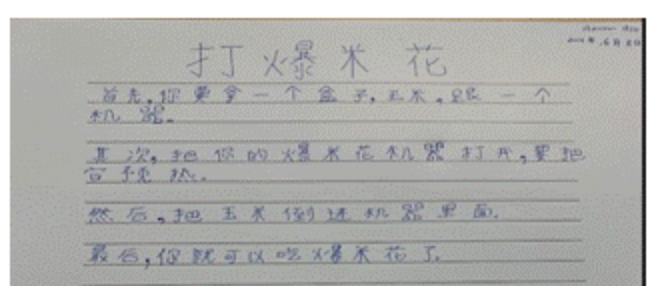 打爆米花
首先,你要拿一个盒子,玉米,跟一个
机器。
其次,把你的爆米花机器打开,要把
它预热。
然后,把玉米倒进机器里面.
最后,你就可以吃爆米花了.